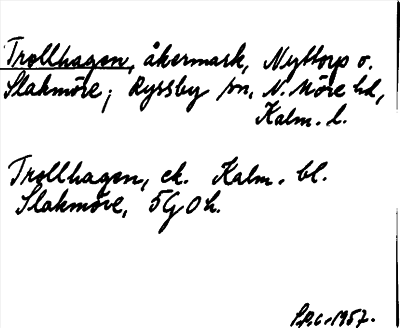 Trollhagen, åkermark, Nyttorp o.
Slakmöre; Ryssby sn, N. Möre hd,
Kalm. l.
Trollhagen, ek. Kalm. bl.
Slakmöre, 5G0h.
1957.